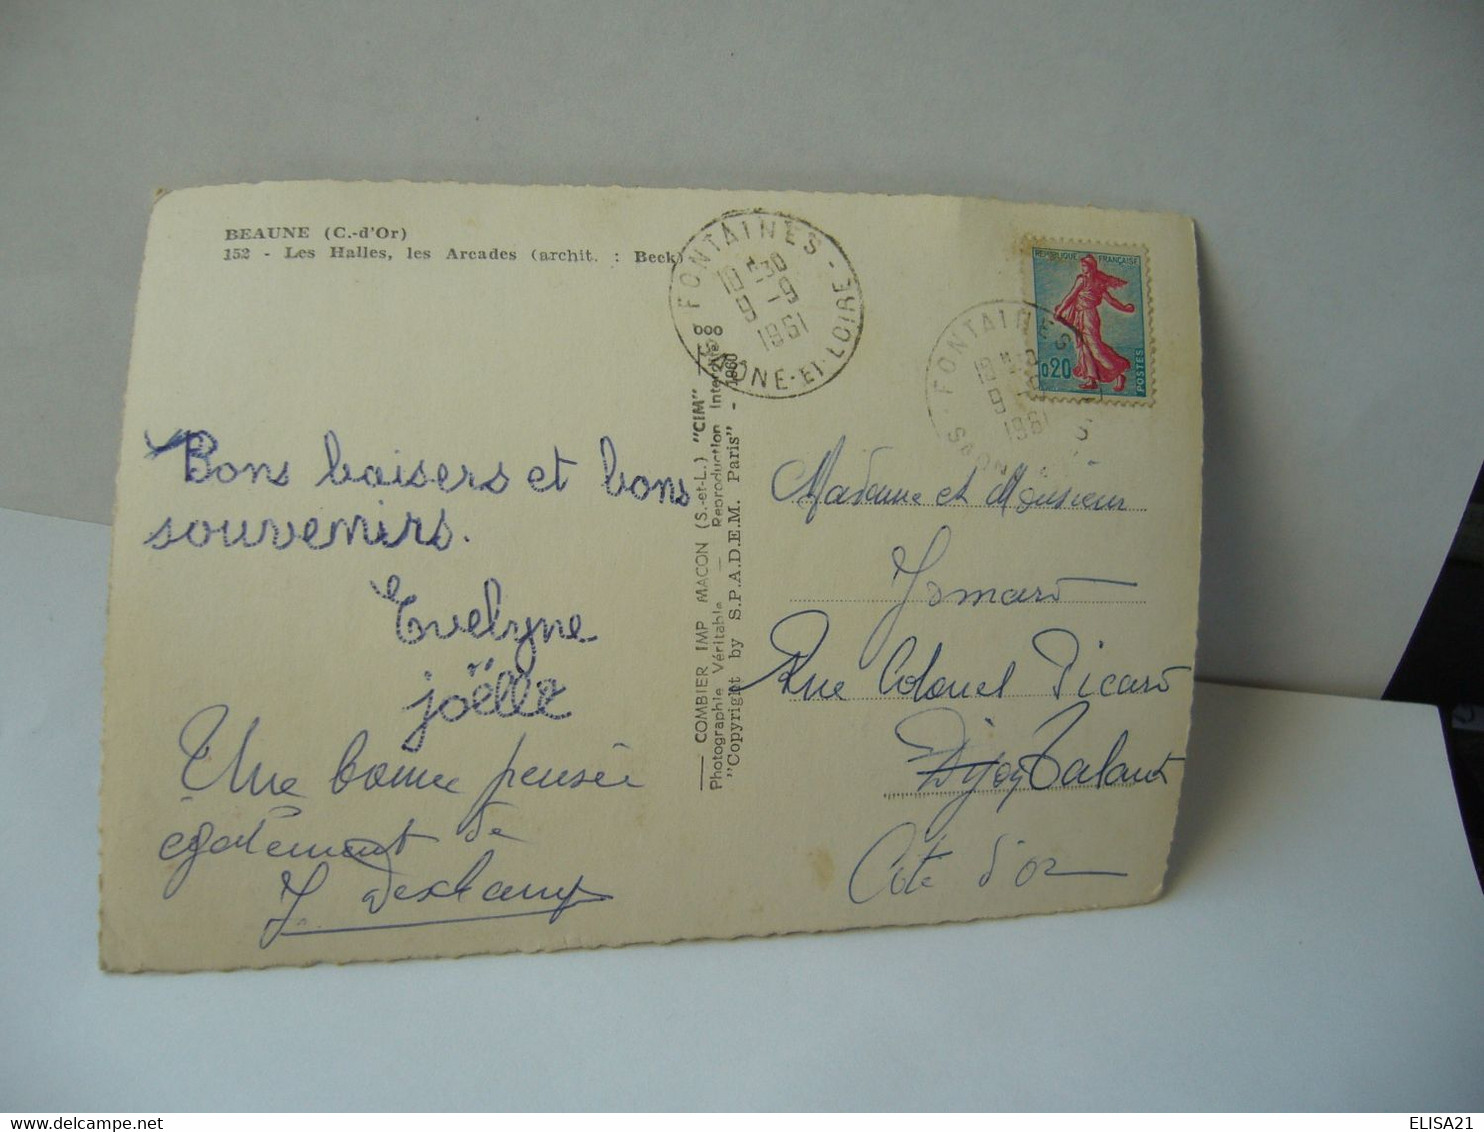 BEAUNE (C.-d'Or)
152 - Les Halles, les Arcades (archit. : Beck)
FONTAINES -
10 H30
9 -9
1961
SAONE-ET-LOIRE
REPUBLIQUE FRANÇAISE
0,20
POSTES
FONTAINES
9 -9
1961
Bons baisers et bons
souvenirs.
Evelyne
joëlle
Une bonne pensée
également de
J. Deschamps
COMBIER IMP MACON (S.-et-L.) "CIM"
Photographie Véritable — Reproduction Interdite
"Copyright by S.P.A.D.E.M. Paris" - 1960
Madame et Monsieur
Rue Colonel Picard
Dijon Talant
Côte d'or
ELISA21